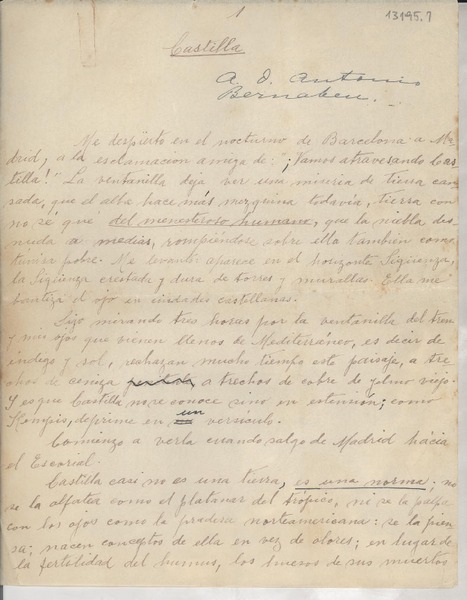 1
13195.7
Castilla
A. D. Antonio
Bernabeu.
Me despierto en el nocturno de Barcelona a Ma-
drid, a la esclamacion amiga de: "¡Vamos atravesando Cas-
tilla!" La ventanilla deja ver una miseria de tierra can-
sada, que el alba hace más mezquina todavía, tierra con
no sé qué del menesteroso humano, que la niebla des-
nuda a medias, rompiéndose sobre ella también como
túnica pobre. Me levanto: aparece en el horizonte Sigüenza,
la Sigüenza crestada y dura de torres y murallas. Ella me
bautiza el ojo en ciudades castellanas.
Sigo mirando tres horas por la ventanilla del tren
y mis ojos que vienen llenos de Mediterráneo, es decir de
índigo y sol, rechazan mucho tiempo este paisaje, a tre-
chos de ceniza a trechos de cobre de yelmo viejo.
Y es que Castilla no se conoce sino en estensión; como
Kempis, deprime en un versículo.
Comienzo a verla cuando salgo de Madrid hácia
el Escorial.
Castilla casi no es una tierra, es una norma; no
se la olfatea como el platanar del trópico, ni se la palpa
con los ojos como la pradera norteamericana: se la pien-
sa; nacen conceptos de ella en vez de olores; en lugar de
la fertilidad del humus, los huesos de sus muertos